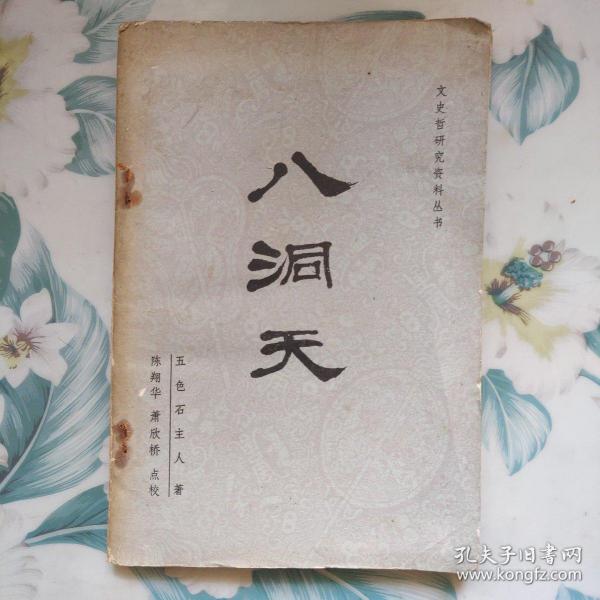 文史哲研究资料丛书
八洞天
五色石主人著
陈翔华 萧欣桥 点校
孔夫子旧书网
www.kongfz.com